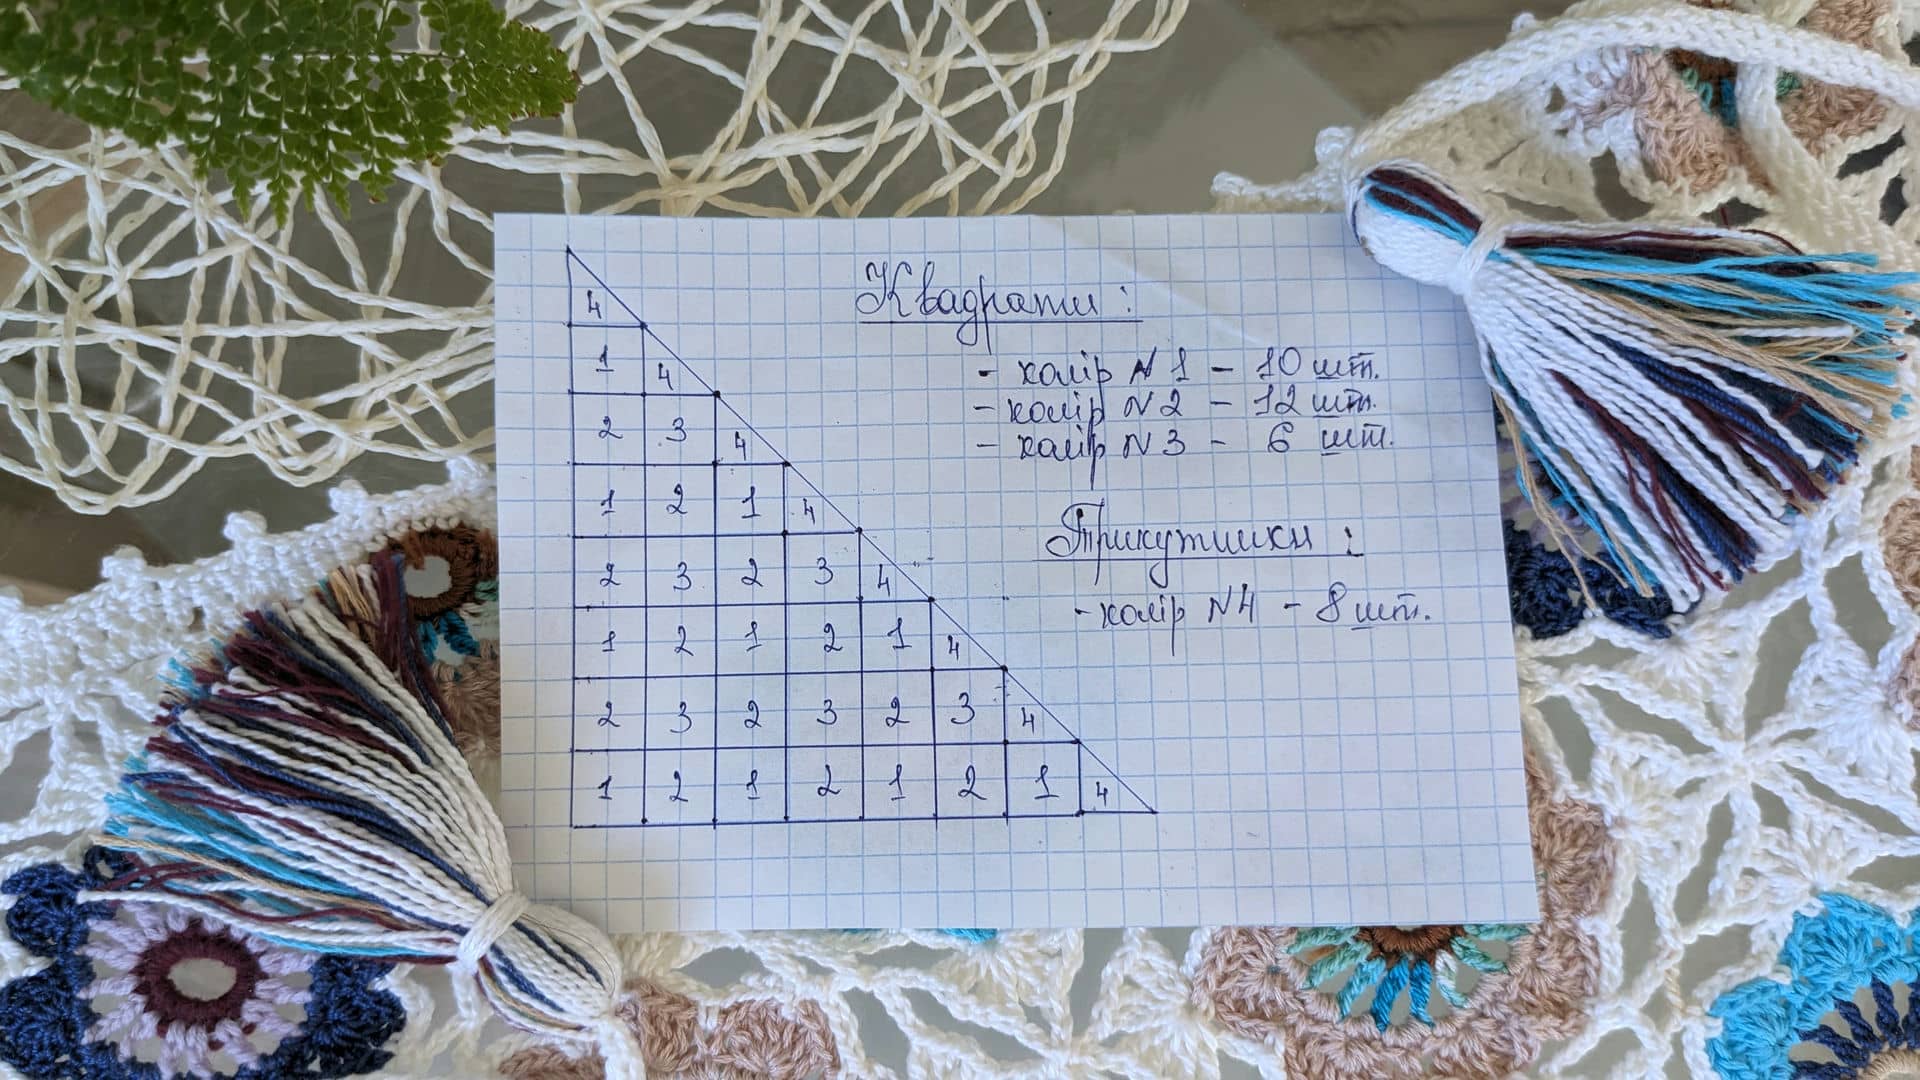 Квадрати:
- колір №1 - 10 шт.
- колір №2 - 12 шт.
- колір №3 - 6 шт.
Трикутники:
- колір №4 - 8 шт.
4
1 4
2 3 4
1 2 1 4
2 3 2 3 4
1 2 1 2 1 4
2 3 2 3 2 3 4
1 2 1 2 1 2 1 4